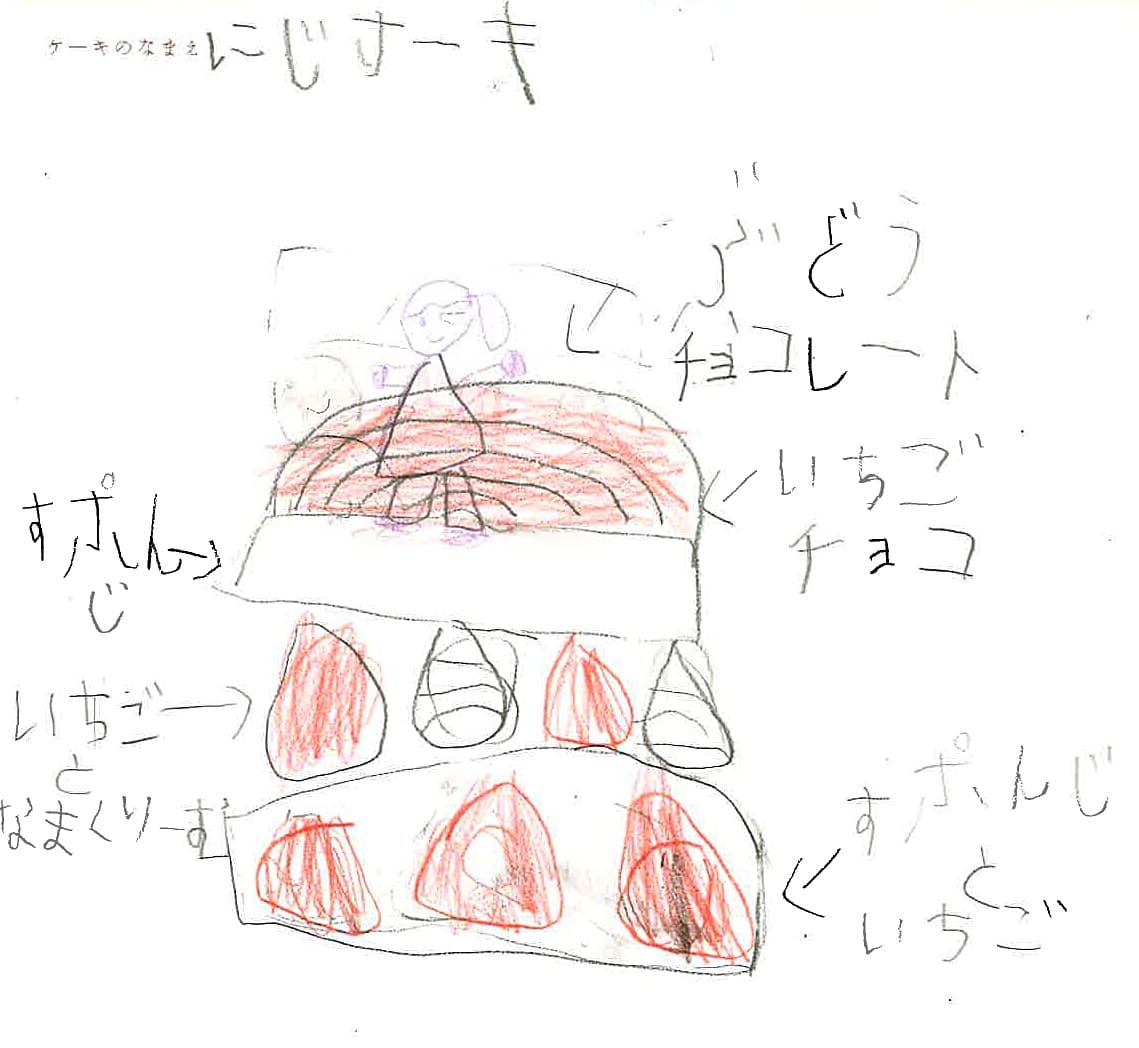 ケーキのなまえ にじサーキ
ぶどう
チョコレート
いちご
チョコ
すポん
じ
いちご
と
なまくりーむ
すポんじ
と
いちご